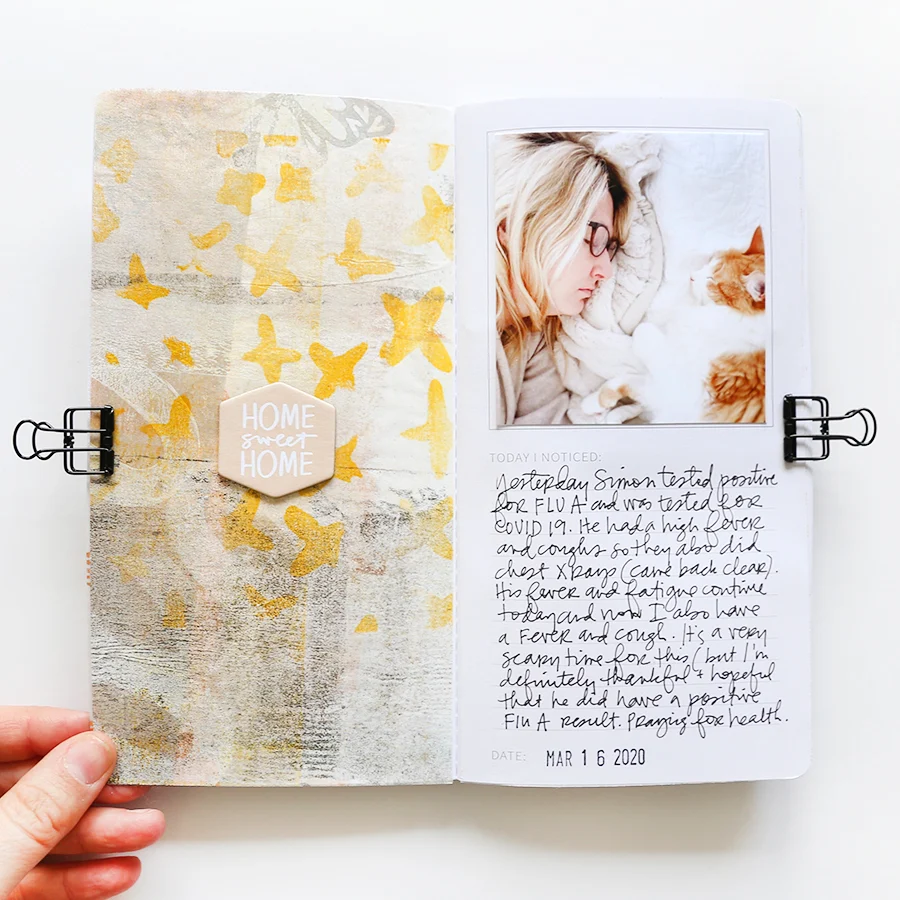 HOME
sweet
HOME
TODAY I NOTICED:
Yesterday Simon tested positive
for FLU A and was tested for
COVID 19. He had a high fever
and coughs so they also did
chest X Rays (came back clear).
His fever and fatigue continue
today and now I also have
a Fever and cough. It's a very
scary time for this (but I'm
definitely thankful + hopeful
that he did have a positive
Flu A result. Praying for health.
DATE: MAR 1 6 2020